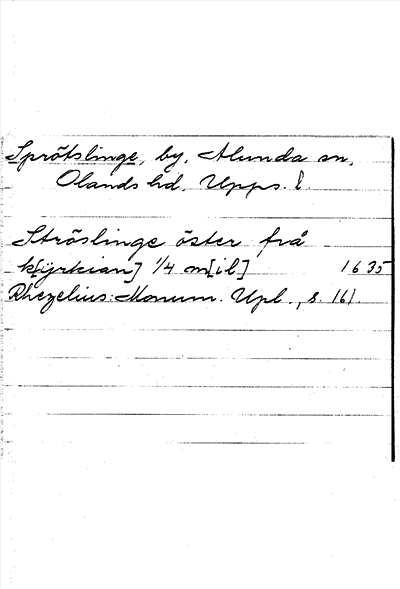 Sprötslinge, by, Alunda sn,
Olands hd. Upps. l.
Ströslinge öster frå
k[yrkian] 1/4 m[il] 1635
Rhezelius: Monum. Upl., s. 161.